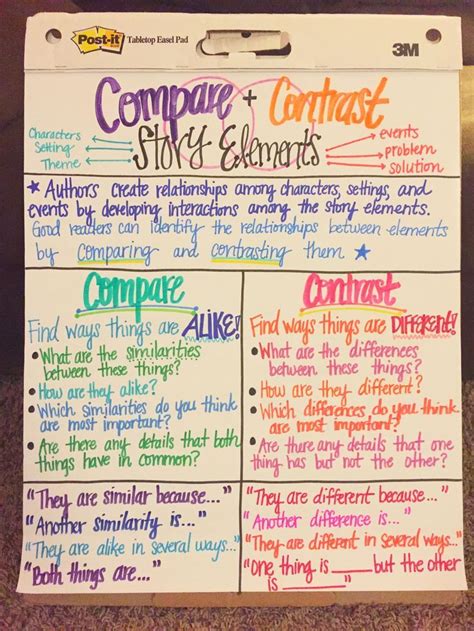 Post-it Tabletop Easel Pad
3M
Compare + Contrast
Story Elements
Characters
Setting
Theme
events
problem
solution
★ Authors create relationships among characters, settings, and
events by developing interactions among the story elements.
Good readers can identify the relationships between elements
by comparing and contrasting them ★
Compare
Find ways things are ALIKE!
• What are the similarities
between these things?
• How are they alike?
• Which similarities do you think
are most important?
• Are there any details that both
things have in common?
Contrast
Find ways things are DIFFERENT!
• What are the differences
between these things?
• How are they different?
• Which differences do you think
are most important?
• Are there any details that one
thing has but not the other?
"They are similar because..."
"Another similarity is..."
"They are alike in several ways..."
"Both things are..."
"They are different because..."
"Another difference is..."
"They are different in several ways..."
"One thing is ____ but the other
is ____"